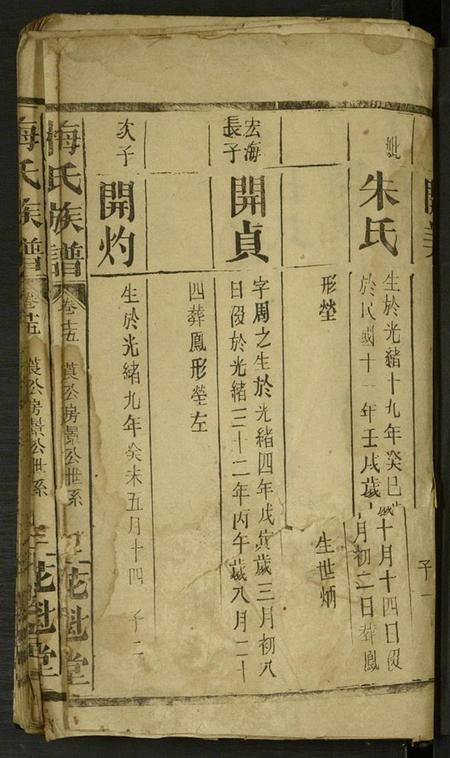 子一
妣
朱氏
生於光緒十九年癸巳歲十月十四日歿
於民國十一年壬戌歲 月初二日葬鳳
形塋
生世炳
宏海
長子
開貞
字周之生於光緒四年戊寅歲三月初八
日歿於光緒三十二年丙午歲八月二十
四葬鳳形塋左
次子
開灼
生於光緒九年癸未五月十四
子二
梅氏族譜
卷十五
公房景公世系
花魁堂
梅氏族譜
卷十五
公房景公世系
花魁堂